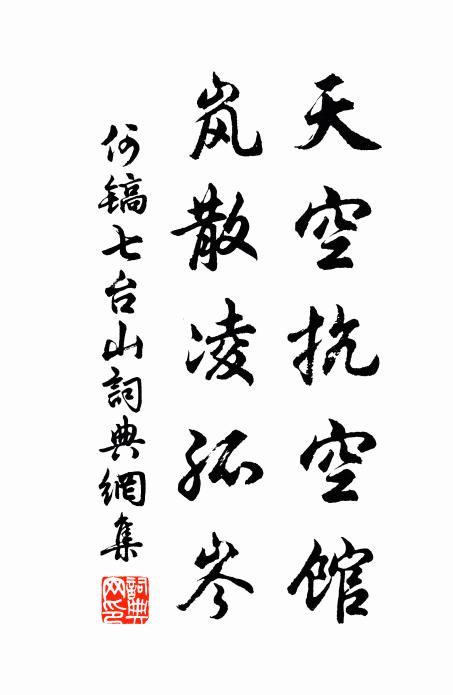 天空抗空館
岚散凌孤岑
何镐七台山詞典網集
詞典網印